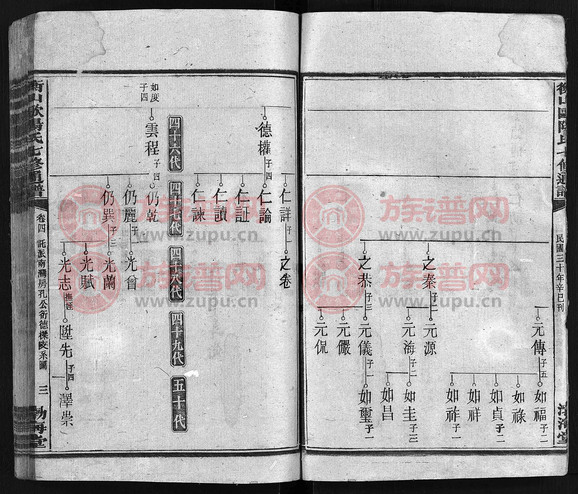 衡山歐陽氏七修通譜
民國三十年辛巳刊
渤海堂
元傳 子五
如福 子二
如祿
如貞 子二
如祥
如祚 子一
之泰 子二
元源
元海 子二
如圭 子三
如昌
之恭 子三
元儀 子一
如璽 子一
元儼
元侃
仁詳 子一
之卷
德權 子四
仁論
仁証
仁讀
仁諫
四十六代
四十七代
四十八代
四十九代
五十代
如度 子四
雲程 子四
仍乾
仍麗 子一
光曾
仍巽 子三
光蘭
光賦
光志 撫孫
陞先 子四
澤榮
衡山歐陽氏七修通譜
卷四
三
渤海堂
族谱网
www.zupu.cn
族谱网
www.zupu.cn
族谱网
www.zupu.cn
族谱网
www.zupu.cn